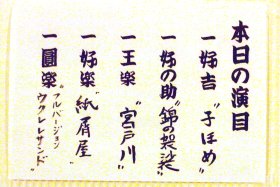 本日の演目
一 好吉 "子ほめ"
一 好の助 "錦の袈裟"
一 王楽 "宮戸川"
一 好楽 "紙屑屋"
一 圓楽 "フルバージョン
ウクレレサンド"